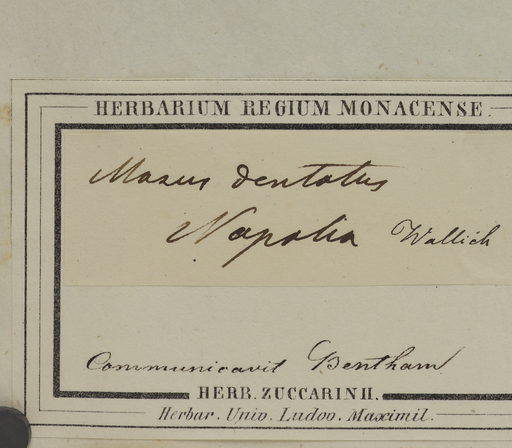 HERBARIUM REGIUM MONACENSE.
Mazus dentatus
Napalia Wallich
Communicavit Bentham
HERB. ZUCCARINII.
Herbar. Univ. Ludov. Maximil.